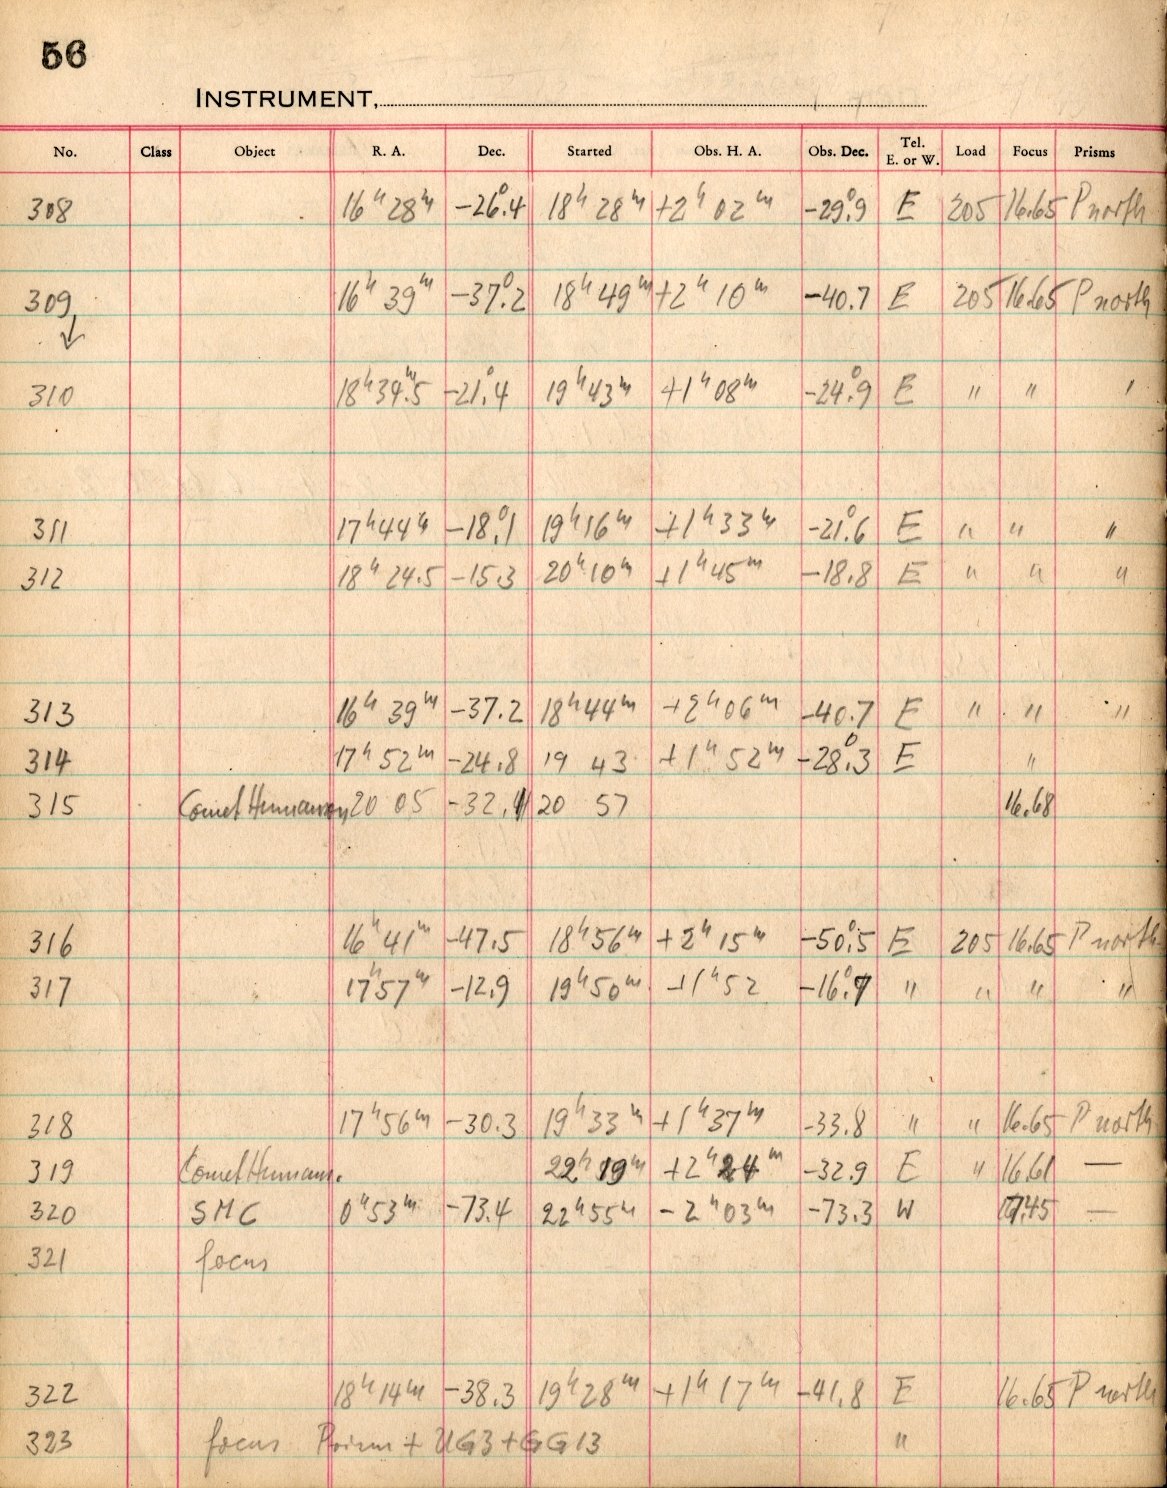 56
INSTRUMENT,
No. Class Object R. A. Dec. Started Obs. H. A. Obs. Dec. Tel. E. or W. Load Focus Prisms
308 16h 28m -26°.4 18h 28m +2h 02m -29°.9 E 205 16.65 P north
309 16h 39m -37°.2 18h 49m +2h 10m -40.7 E 205 16.65 P north
↓
310 18h 34m.5 -21°.4 19h 43m +1h 08m -24°.9 E " " '
311 17h 44m -18°.1 19h 16m +1h 33m -21°.6 E " " "
312 18h 24.5 -15.3 20h 10m +1h 45m -18.8 E " " "
313 16h 39m -37.2 18h 44m +2h 06m -40.7 E " " "
314 17h 52m -24.8 19 43 +1h 52m -28°.3 E "
315 Comet Humason 20 05 -32. 20 57 16.68
316 16h 41m -47.5 18h 56m +2h 15m -50°.5 E 205 16.65 P north
317 17h 57m -12.9 19h 50m +1h 52 -16°. " " " "
318 17h 56m -30.3 19h 33m +1h 37m -33.8 " " 16.65 P north
319 Comet Humas. 22h 19m +2h 24m -32.9 E " 16.61 —
320 SMC 0h 53m -73.4 22h 55m -2h 03m -73.3 W —
321 focus
322 18h 14m -38.3 19h 28m +1h 17m -41.8 E 16.65 P north
323 focus Prism + UG3 + GG13 "